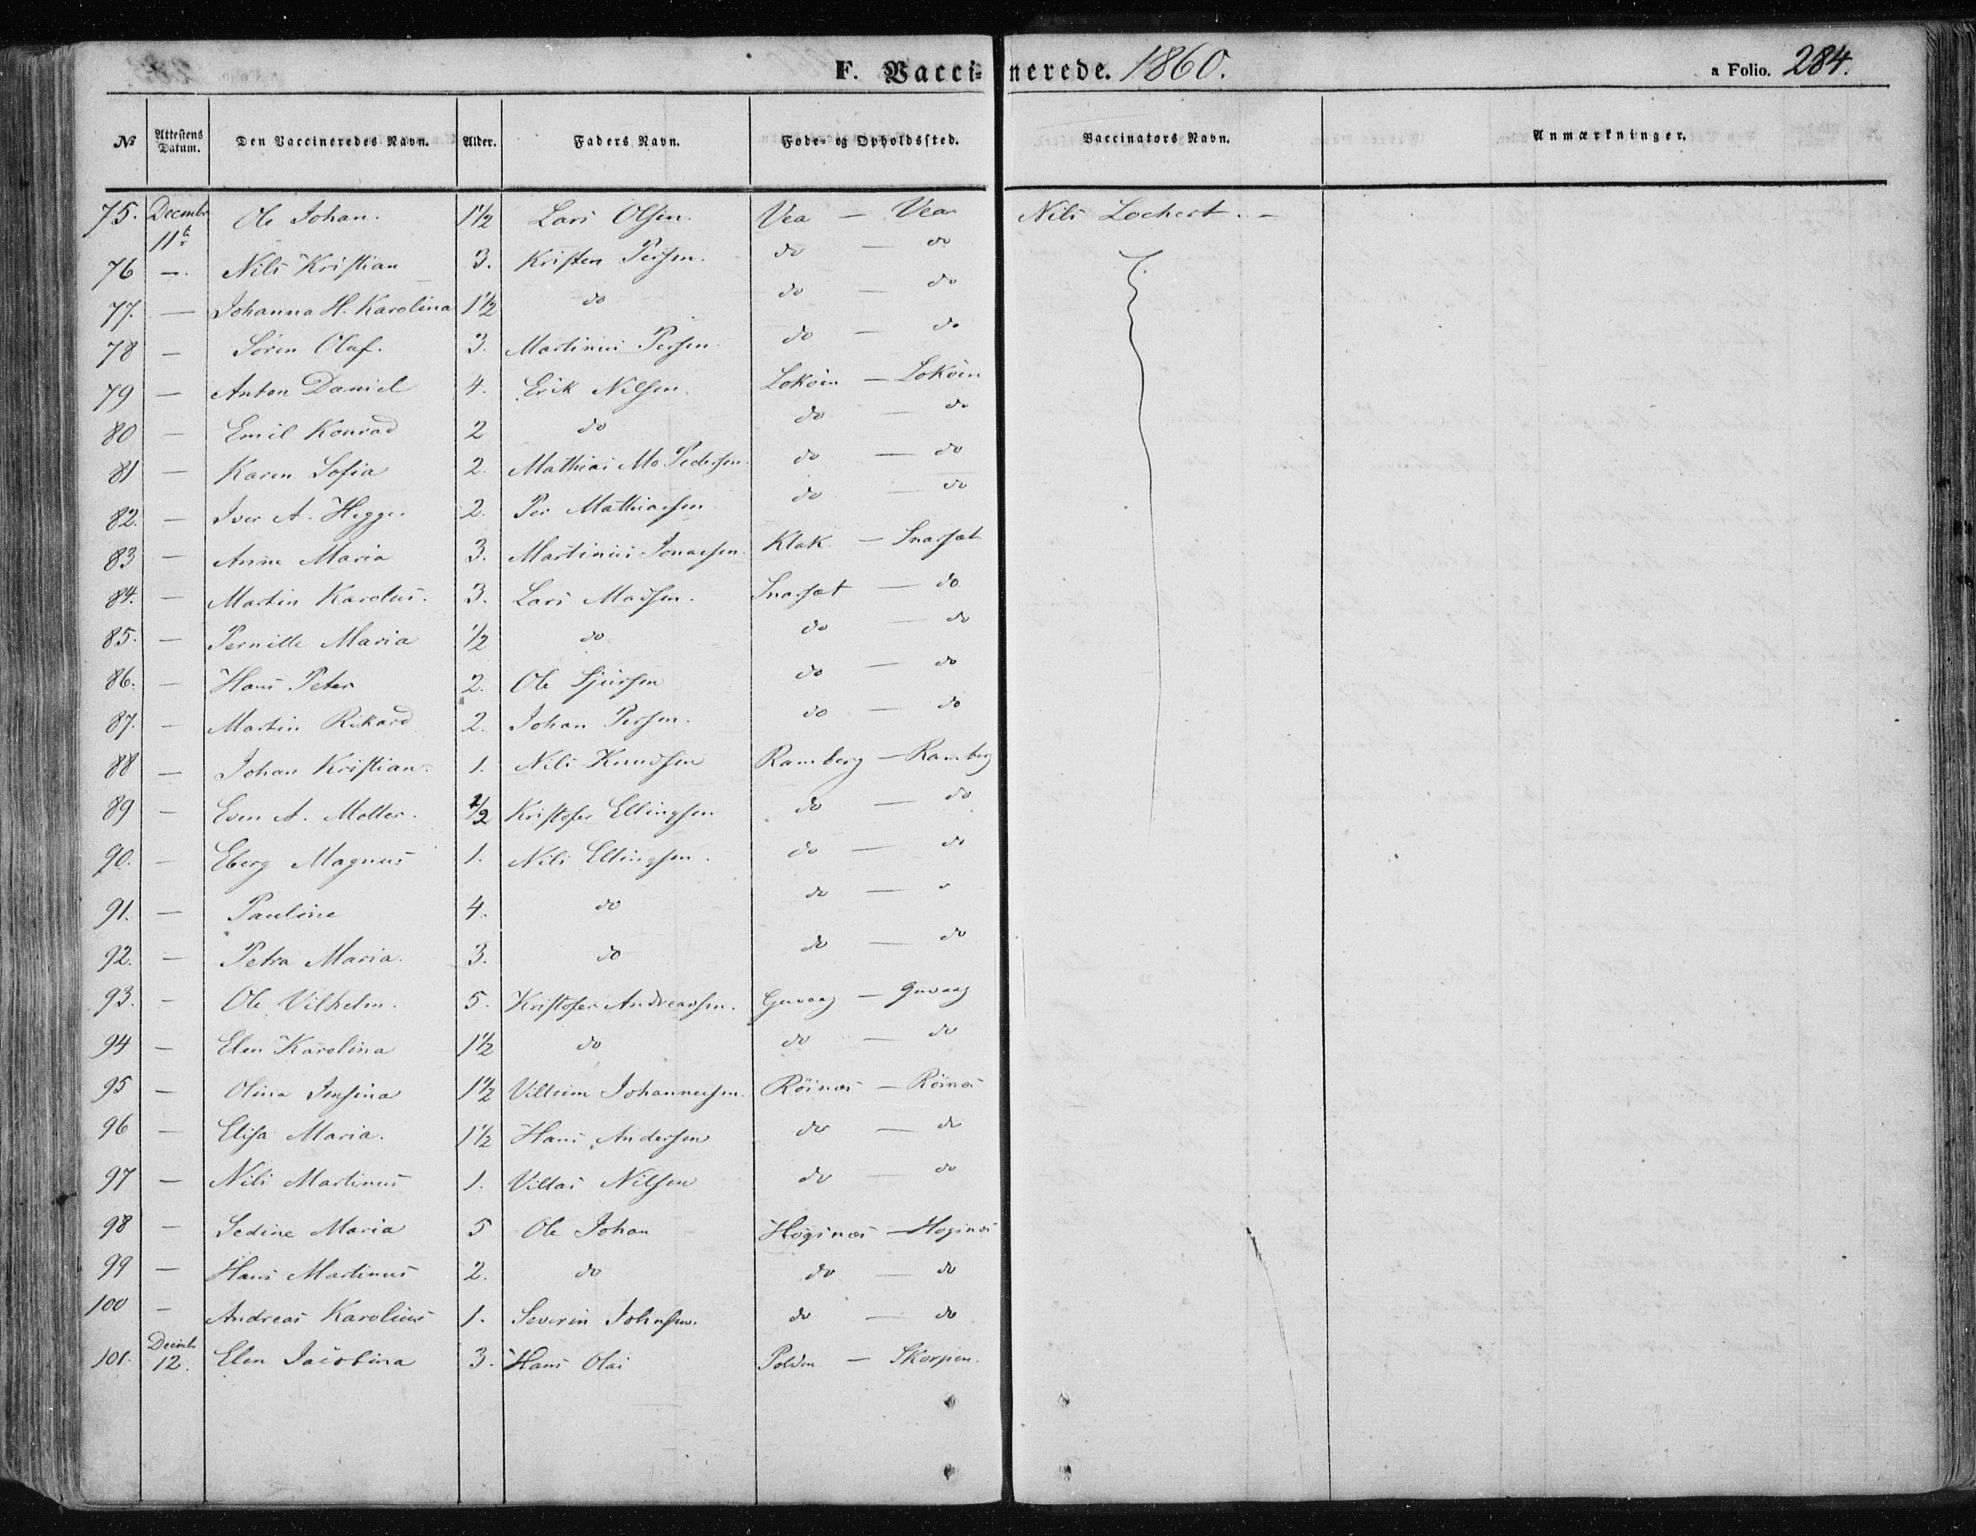 F. Vaccinerede. 1860. a Folio. 284.
№ Attestens Datum. Den Vaccineredes Navn. Alder. Faders Navn. Føde- og Opholdssted. Vaccinators Navn. Anmærkninger.
75. Decembr 11te Ole Johan. 1½ Lars Olsen. Vea — Vea Nils Lochert. —
76 —. Nils Kristian 3. Kristen Persen. do — do
77. — Johanna H. Karolina 1½ do do — do
78 — Sören Olaf. 3. Martinus Persen. do — do
79 — Anton Daniel 4. Erik Nilsen. Loköen — Loköen
80 — Emil Konrad 2 do do — do
81 — Karen Sofia 2. Mathias Mo Pedersen. do — do
82. — Iver A. Hegge. 2. Per Mathiassen. do — do
83 — Anne Maria 3. Martinus Jonassen. Klak — Snarset
84. — Martin Karolus. 3. Lars Madsen. Snarset — do
85. — Pernille Maria ½ do do — do
86. — Hans Peter 2. Ole Sjursen do — do
87. — Martin Rikard 2. Johan Persen. do — do
88 — Johan Kristian. 1. Nils Knudsen Ramberg — Ramberg
89 — Even A. Moller. ½ Kristofer Ellingsen do — do
90. — Eberg Magnus 1. Nils Ellingsen. do — do
91. — Pauline 4. do do —
92. — Petra Maria. 3. do do — do
93. — Ole Vilhelm. 5. Kristofer Andreassen. Guvaag — Guvaag
94 — Elen Karolina 1½ do do — do
95 — Olina Jensina 1½ Villum Johannessen. Röinæs — Röinæs
96 — Elisa Maria. 1½ Hans Andersen do — do
97 — Nils Martinus 1. Villas Nilsen do — do
98 — Sedine Maria 5 Ole Johan Höginæs — Höginæs
99 — Hans Martinus 2. do do — do
100 — Andreas Karolius 1. Severin Johnsen. do — do
101. Decembr 12. Elen Jacobina 3. Hans Olai Polden — Skorpen.